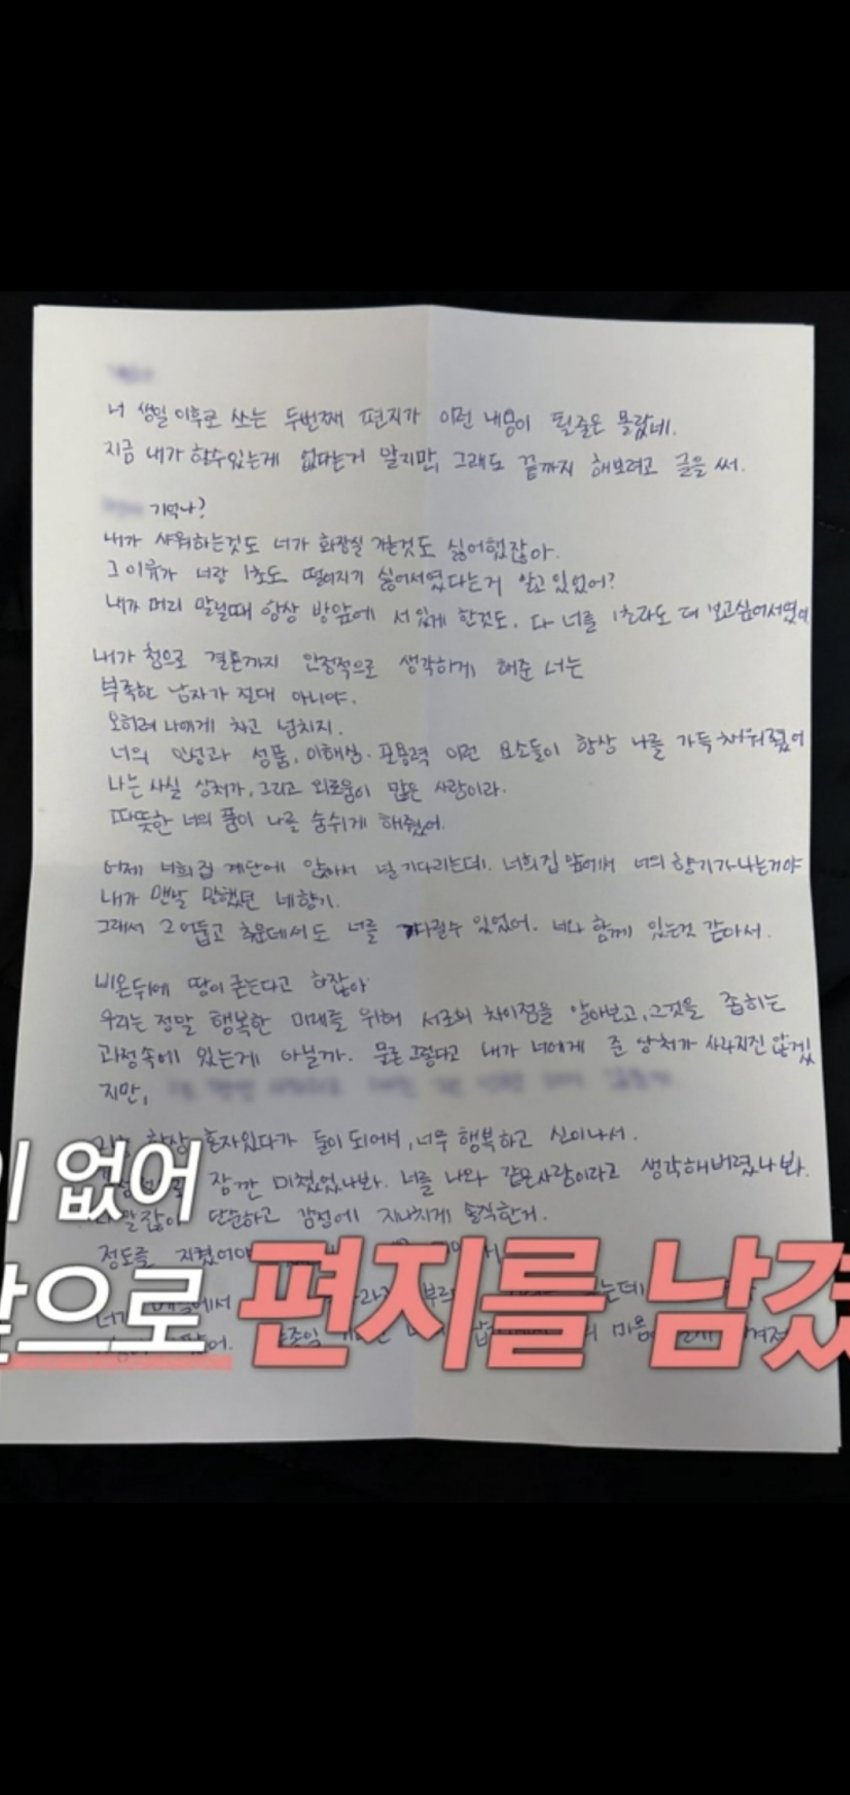 너 생일 이후로 쓰는 두번째 편지가 이런 내용이 될줄은 몰랐네.
지금 내가 할수있는게 없다는거 알지만, 그래도 끝까지 해보려고 글을 써.
기억나?
내가 샤워하는것도 너가 화장실 가는것도 싫어했잖아.
그 이유가 너랑 1초도 떨어지기 싫어서였다는거 알고있었어?
내가 머리 말릴때 항상 방앞에 서있게 한것도. 다 너를 1초라도 더 보고싶어서였어
내가 첨으로 결혼까지 안정적으로 생각하게 해준 너는
부족한 남자가 절대 아니야.
오히려 나에게 차고 넘치지.
너의 인성과 성품, 이해심. 포용력 이런 요소들이 항상 나를 가득 채워줬어
나는 사실 상처가, 그리고 외로움이 많은 사람이라.
따뜻한 너의 품이 나를 숨쉬게 해줬어.
어제 너희집 계단에 앉아서 널 기다리는데. 너희집 앞에서 너의 향기가 나는거야
내가 맨날 말했던 네향기.
그래서 그 어둡고 추운데서도 너를 기다릴수 있었어. 너와 함께 있는것 같아서.
비온뒤에 땅이 굳는다고 하잖아
우리는 정말 행복한 미래를 위해 서로의 차이점을 알아보고, 그것을 좁히는
과정속에 있는게 아닐까. 물론 그렇다고 내가 너에게 준 상처가 사라지진 않겠
지만,
항상 혼자있다가 둘이 되어서, 너무 행복하고 신이나서.
잠깐 미쳤었나봐. 너를 나와 같은사람이라고 생각해버렸나봐.
알잖아 단순하고 감정에 지나치게 솔직한거.
이 없어
정도를 지켰어야
앞으로 편지를 남겼